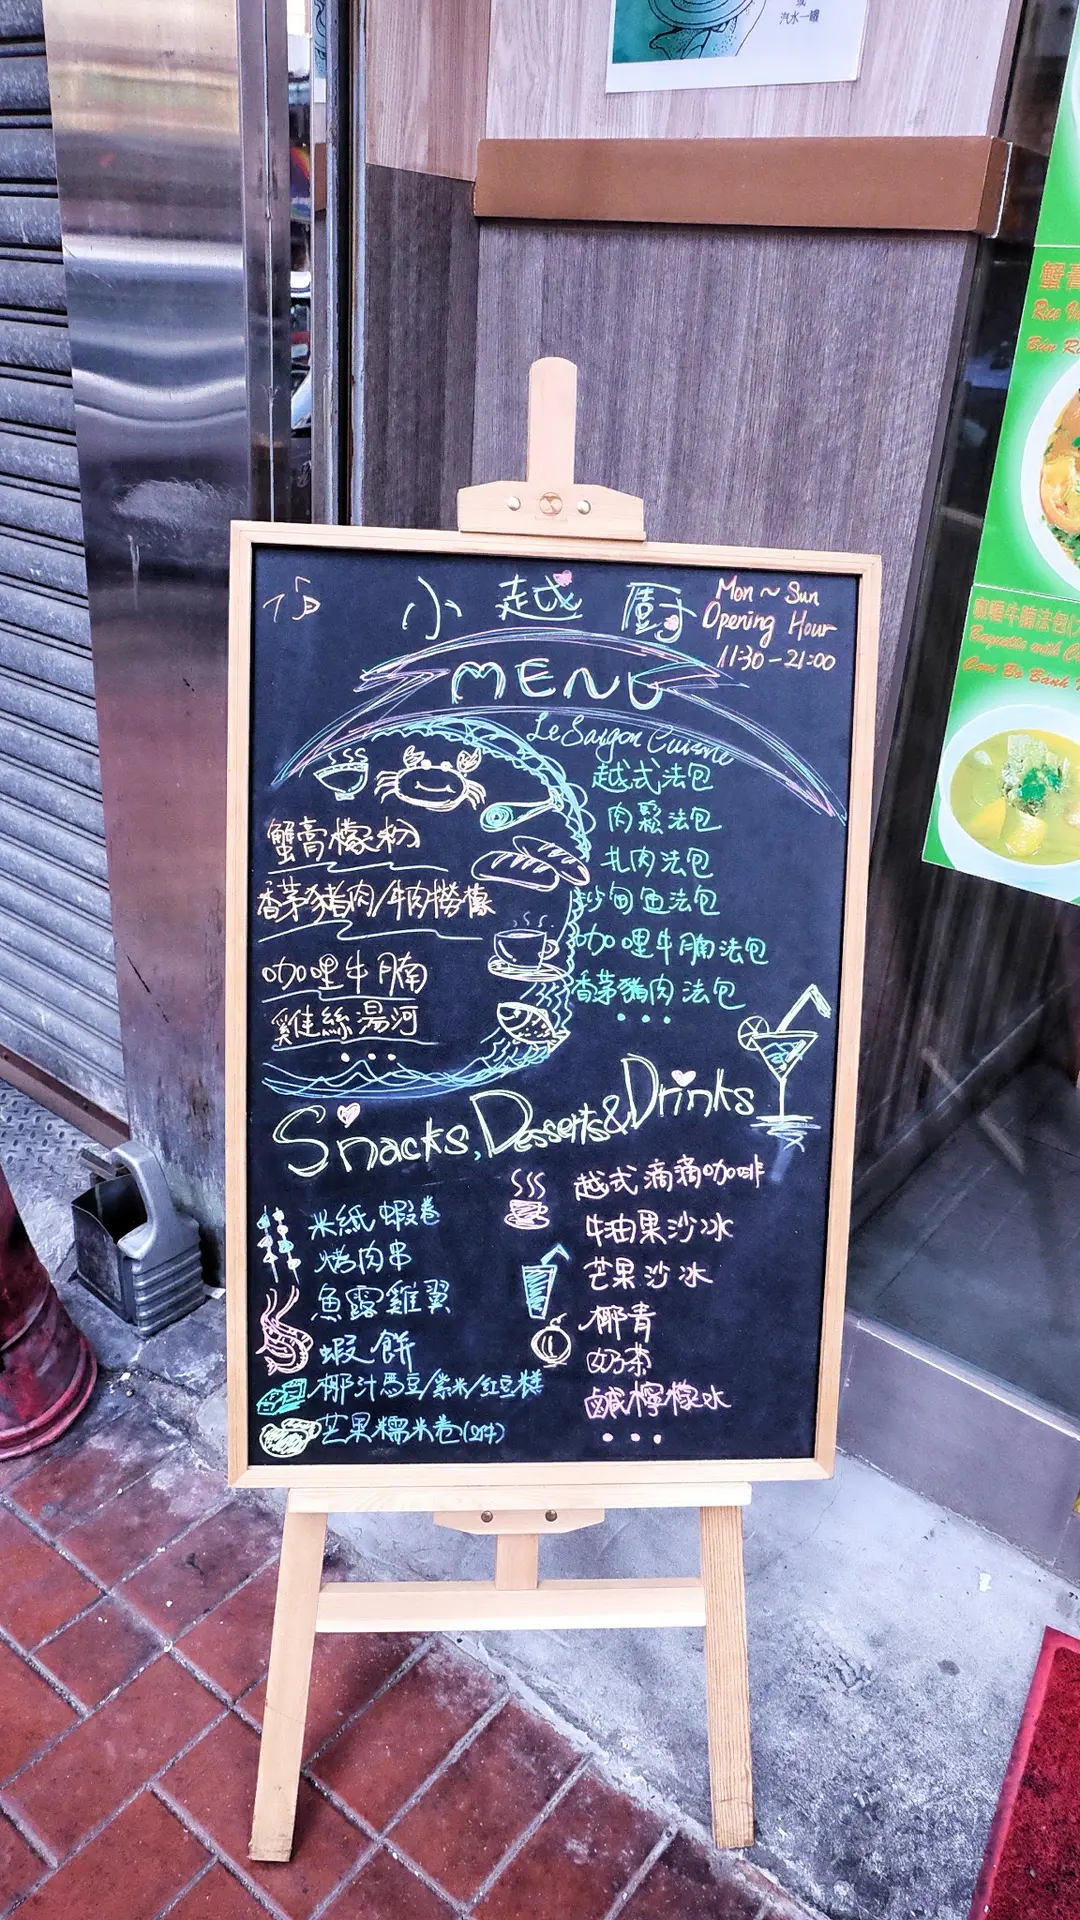 或
汽水一罐
蟹膏
Rice
Bún
小越廚
Mon ~ Sun
Opening Hour
11:30 - 21:00
MENU
Le Saigon Cuisine
蟹膏檬粉
香茅豬肉/牛肉撈檬
咖哩牛腩
雞絲湯河
...
越式法包
肉鬆法包
扎肉法包
沙甸魚法包
咖哩牛腩法包
香茅豬肉法包
...
Snacks, Desserts & Drinks
米紙蝦卷
烤肉串
魚露雞翼
蝦餅
椰汁馬豆/紫米/紅豆糕
芒果糯米卷(2件)
越式滴滴咖啡
牛油果沙冰
芒果沙冰
椰青
奶茶
鹹檸檬水
...
牛腩法包
Baguette with
Bò Bánh